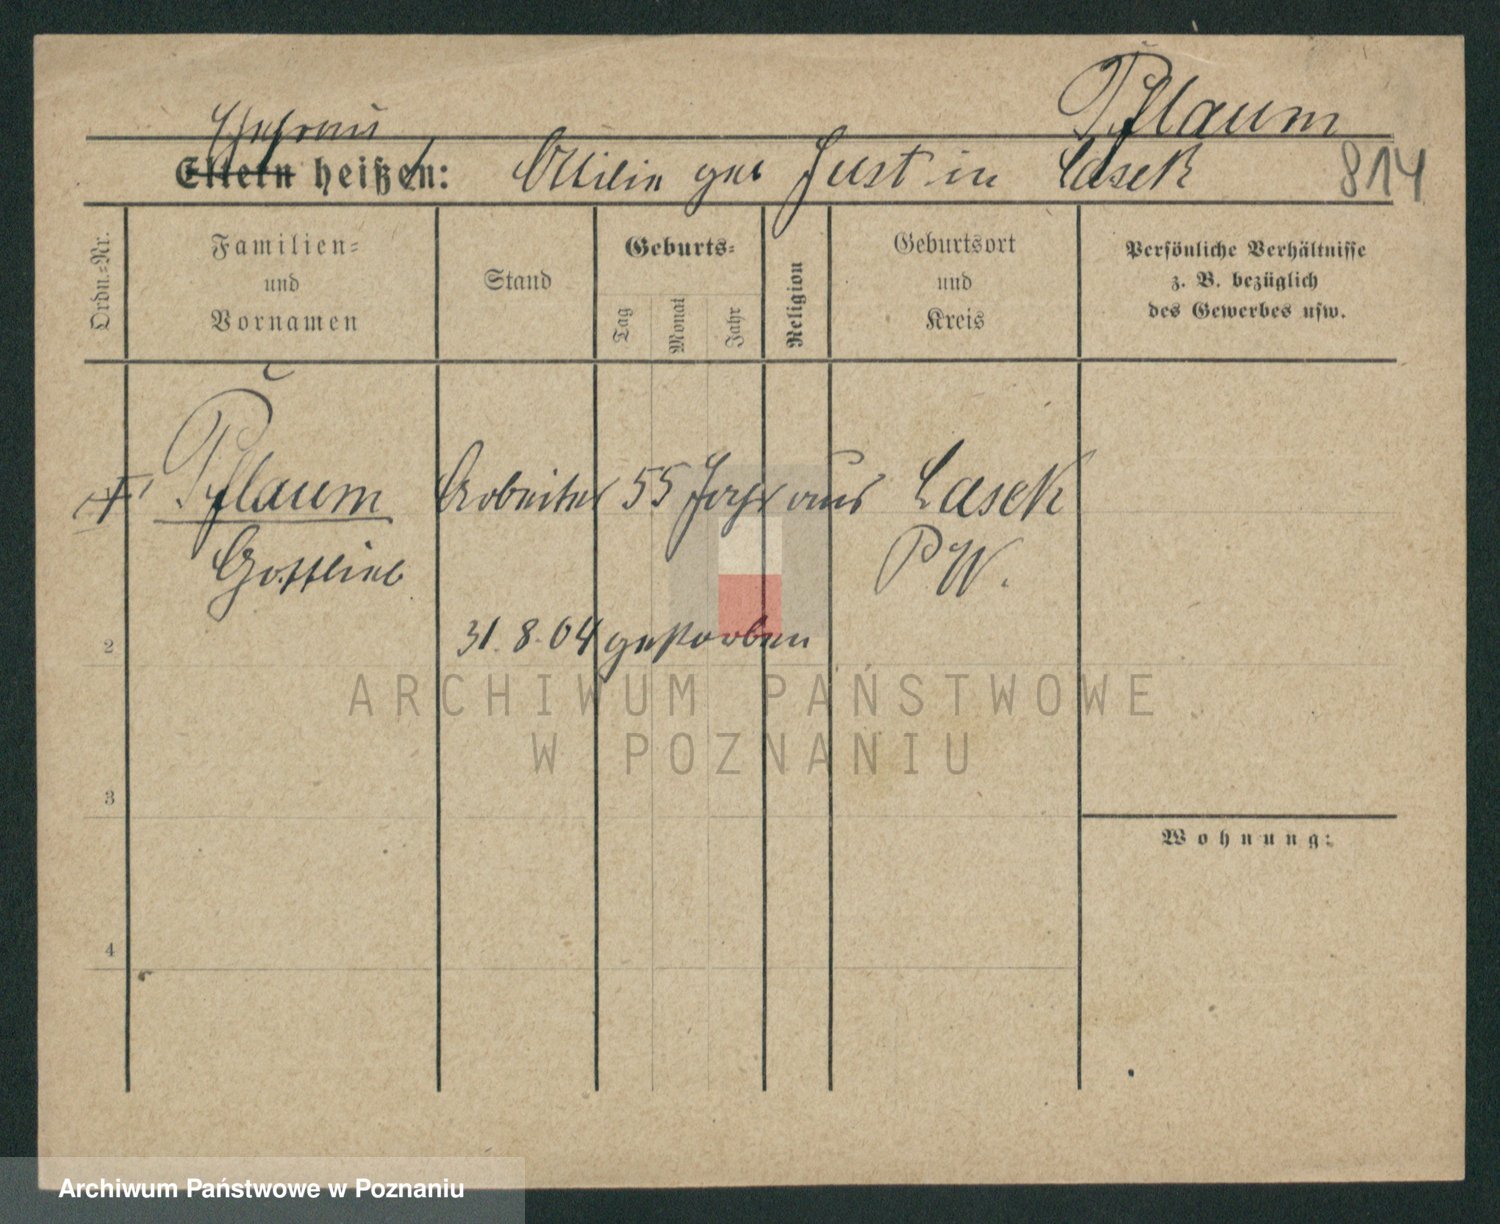 Pflaum
Ehefrau
Eltern heißen: Ottilie geb Just in Lasek
814
Ordn.-Nr.
Familien-
und
Vornamen
Stand
Geburts-
Tag
Monat
Jahr
Religion
Geburtsort
und
Kreis
Persönliche Verhältnisse
z. B. bezüglich
des Gewerbes usw.
Pflaum Arbeiter 55 Jahr aus Lasek
Gottlieb P W.
31. 8. 04 gestorben
2
ARCHIWUM PAŃSTWOWE
W POZNANIU
3
Wohnung:
4
Archiwum Państwowe w Poznaniu